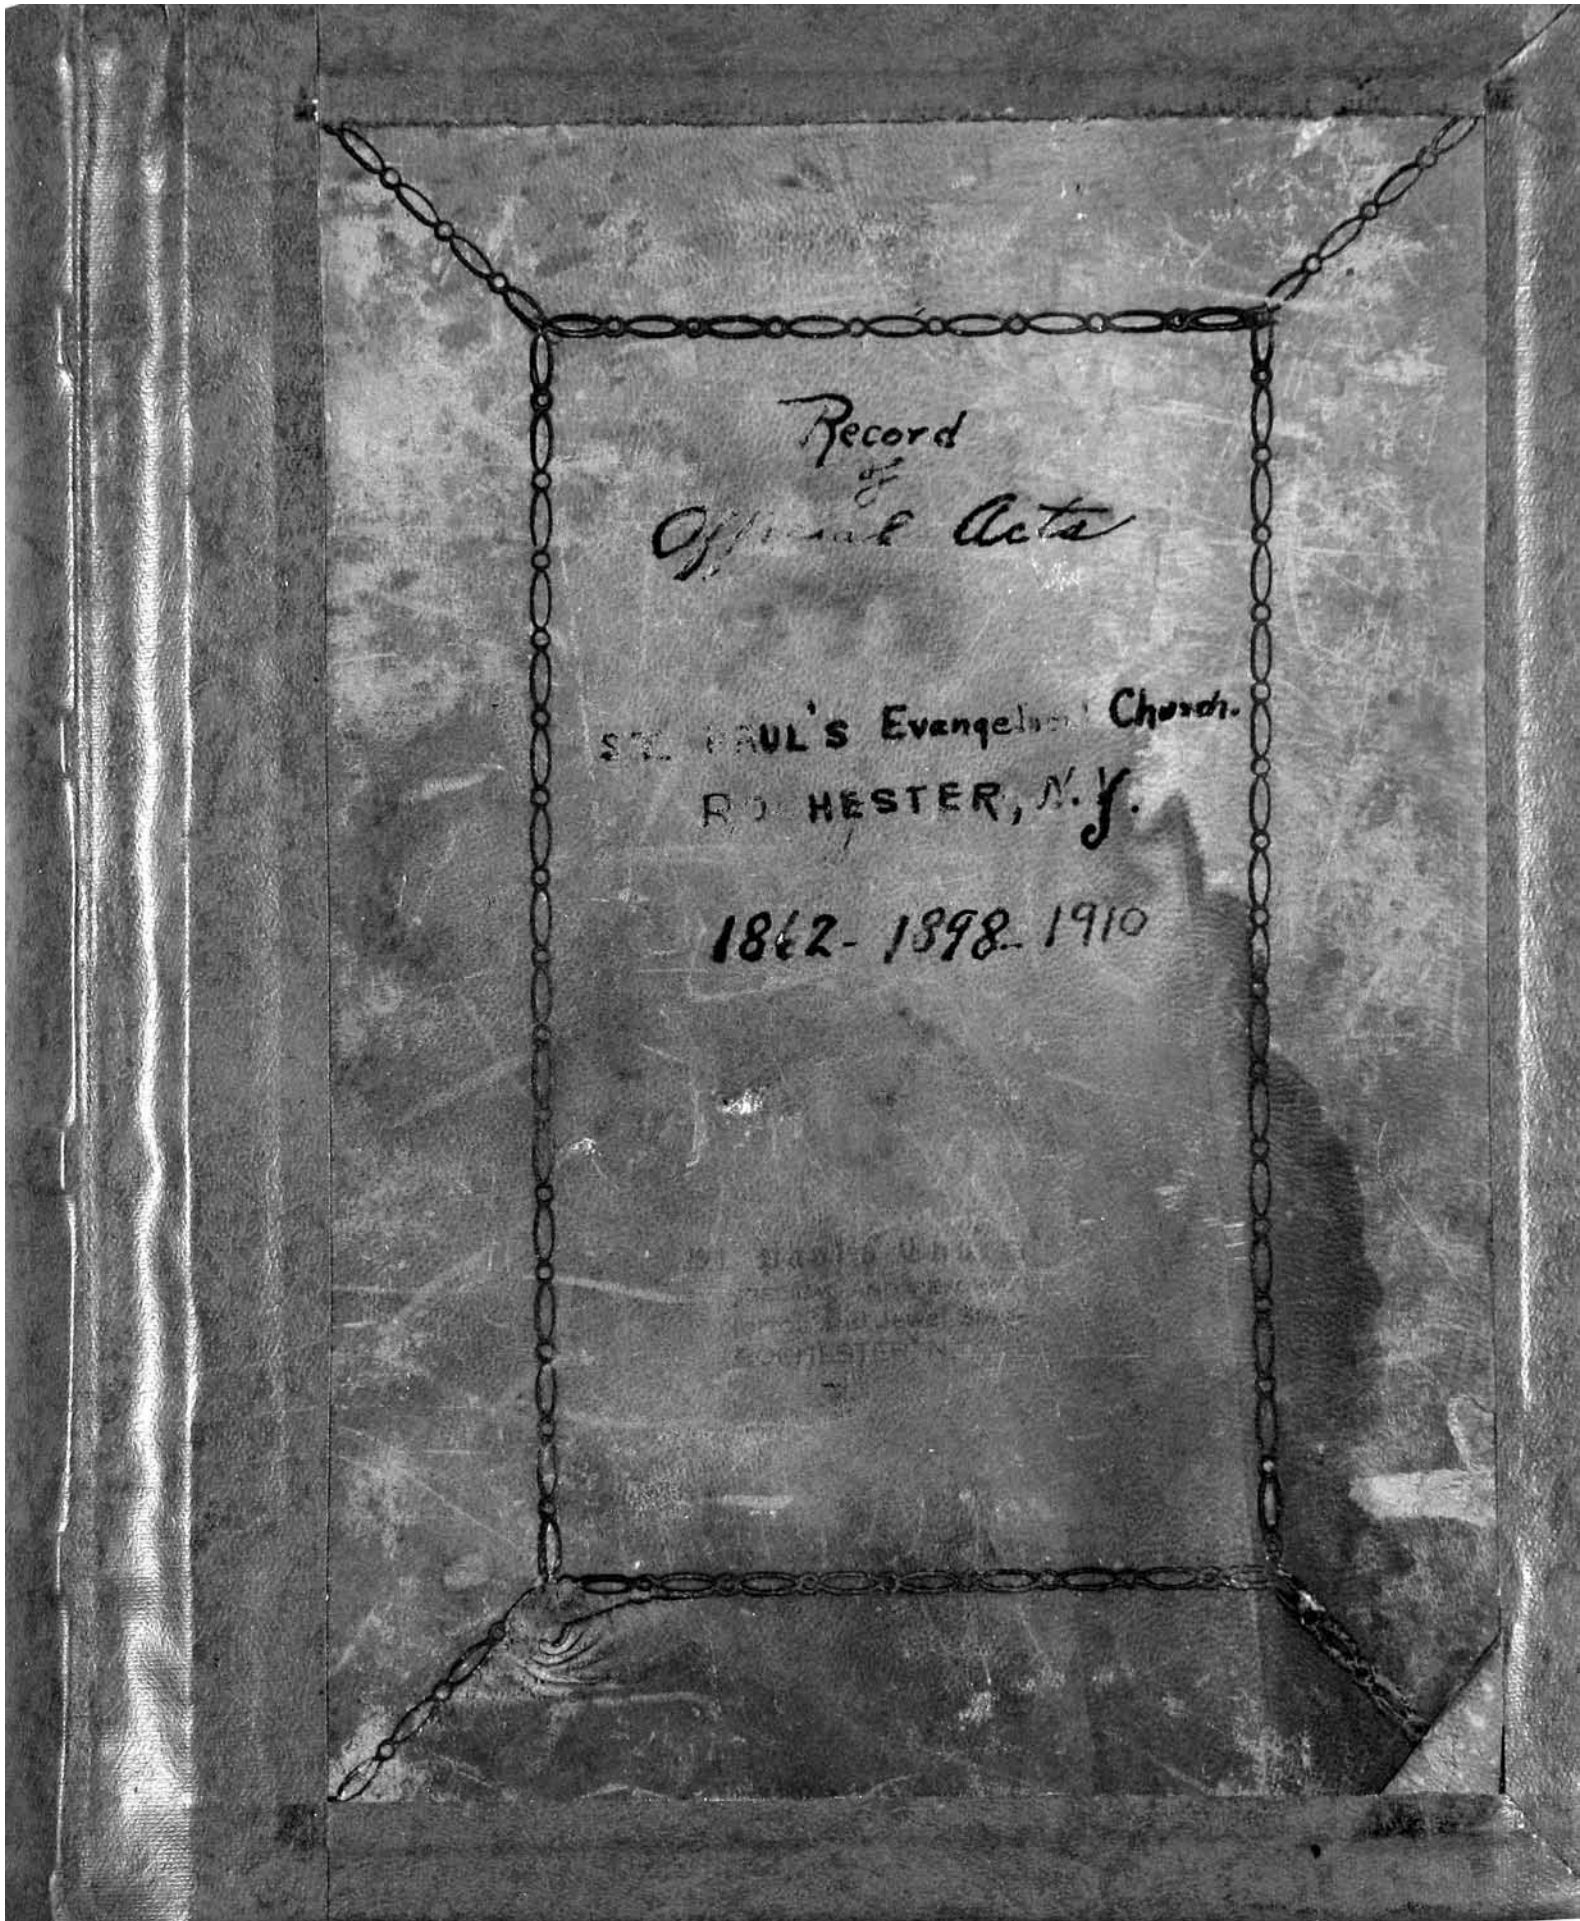 Record
of
Official Acts
ST. PAUL'S Evangelical Church.
ROCHESTER, N.Y.
1862- 1898- 1910
ROCHESTER, N